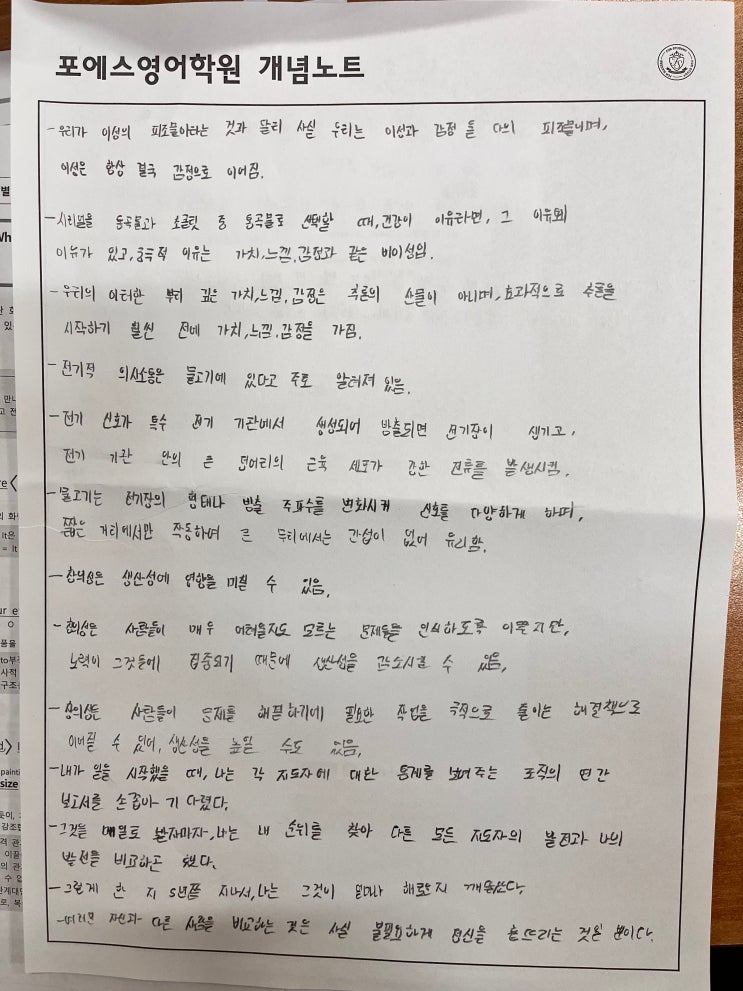 포에스영어학원 개념노트
- 우리가 이성의 피조물이라는 것과 달리 사실 우리는 이성과 감정 둘 다의 피조물이며,
이성은 항상 결국 감정으로 이어짐.
- 시리얼을 통곡물과 초콜릿 중 통곡물로 선택할 때, 건강이 이유라면, 그 이유의
이유가 있고, 궁극적 이유는 가치, 느낌, 감정과 같은 비이성임.
- 우리의 이러한 뿌리 깊은 가치, 느낌, 감정은 추론의 산물이 아니며, 효과적으로 추론을
시작하기 훨씬 전에 가치, 느낌, 감정을 가짐.
- 전기적 의사소통은 물고기에 있다고 주로 알려져 있음.
- 전기 신호가 특수 전기 기관에서 생성되어 방출되면 전기장이 생기고,
전기 기관 안의 큰 덩어리의 근육 세포가 강한 전류를 발생시킴.
- 물고기는 전기장의 형태나 방출 주파수를 변화시켜 신호를 다양하게 하며,
짧은 거리에서만 작동하여 큰 무리에서는 간섭이 없어 유리함.
- 창의성은 생산성에 영향을 미칠 수 있음.
- 창의성은 사람들이 매우 어려울지도 모르는 문제들을 인식하도록 이끌지만,
노력이 그것들에 집중되기 때문에 생산성을 감소시킬 수 있음.
- 창의성은 사람들이 문제를 해결하기에 필요한 작업을 극적으로 줄이는 해결책으로
이어질 수 있어, 생산성을 높일 수도 있음.
- 내가 일을 시작했을 때, 나는 각 지도자에 대한 통계를 보여주는 조직의 연간
보고서를 손꼽아 기다렸다.
- 그것을 메일로 받자마자, 나는 내 순위를 찾아 다른 모든 지도자의 발전과 나의
발전을 비교하곤 했다.
- 그렇게 한 지 5년쯤 지나서, 나는 그것이 얼마나 해로운지 깨달았다.
- 여러분 자신과 다른 사람을 비교하는 것은 사실 불필요하게 정신을 흩뜨리는 것일 뿐이다.